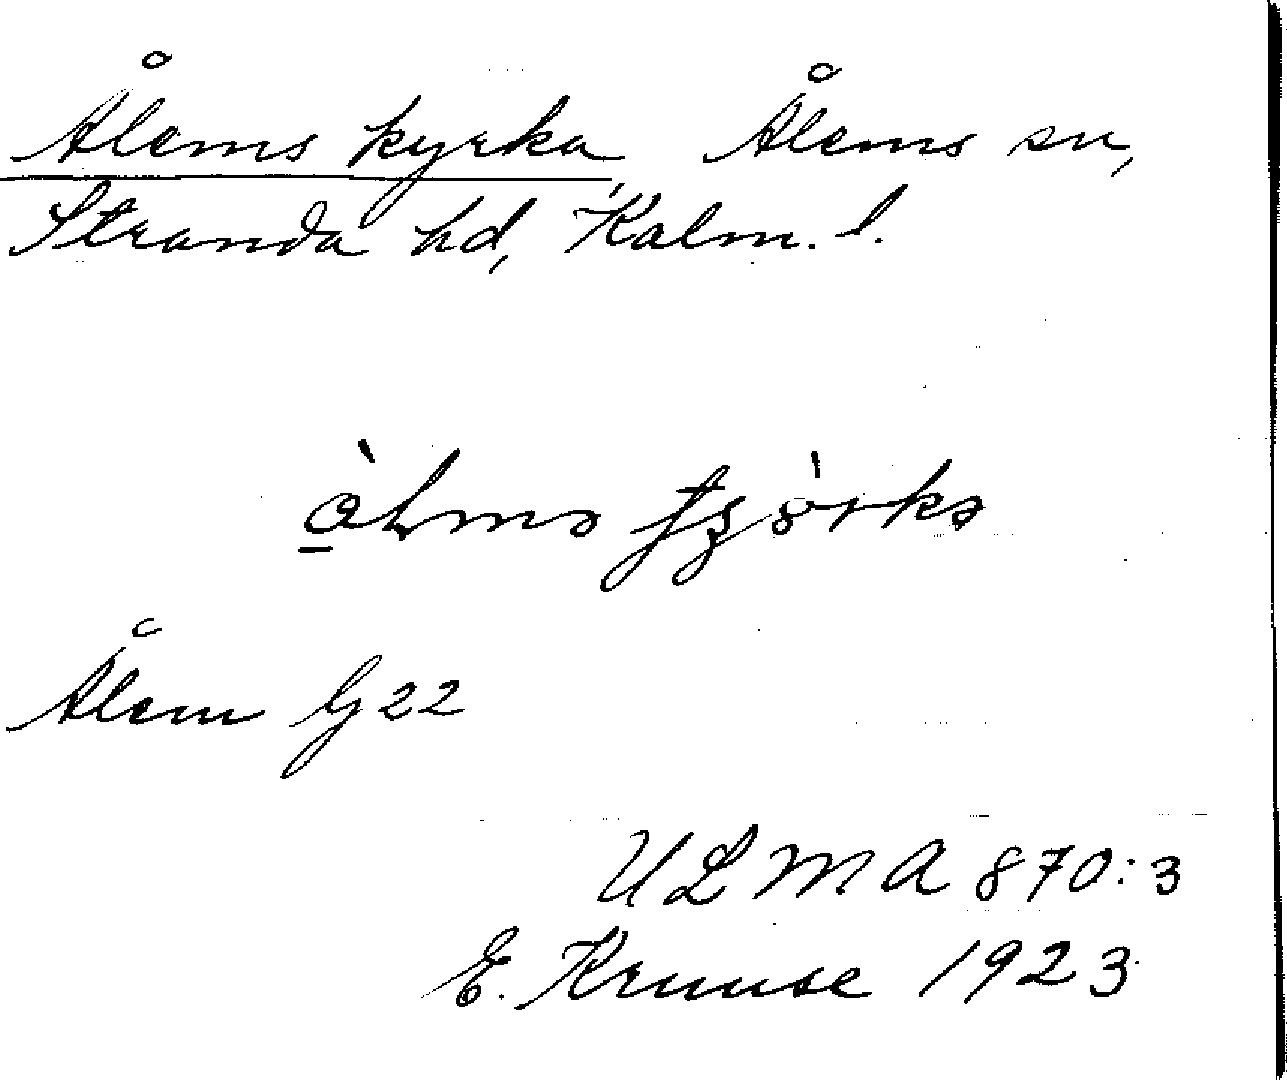 Ålems kyrka Ålems sn,
Stranda hd, Kalm. l.
Ålem G 22
ULMA 870:3
E. Kruuse 1923